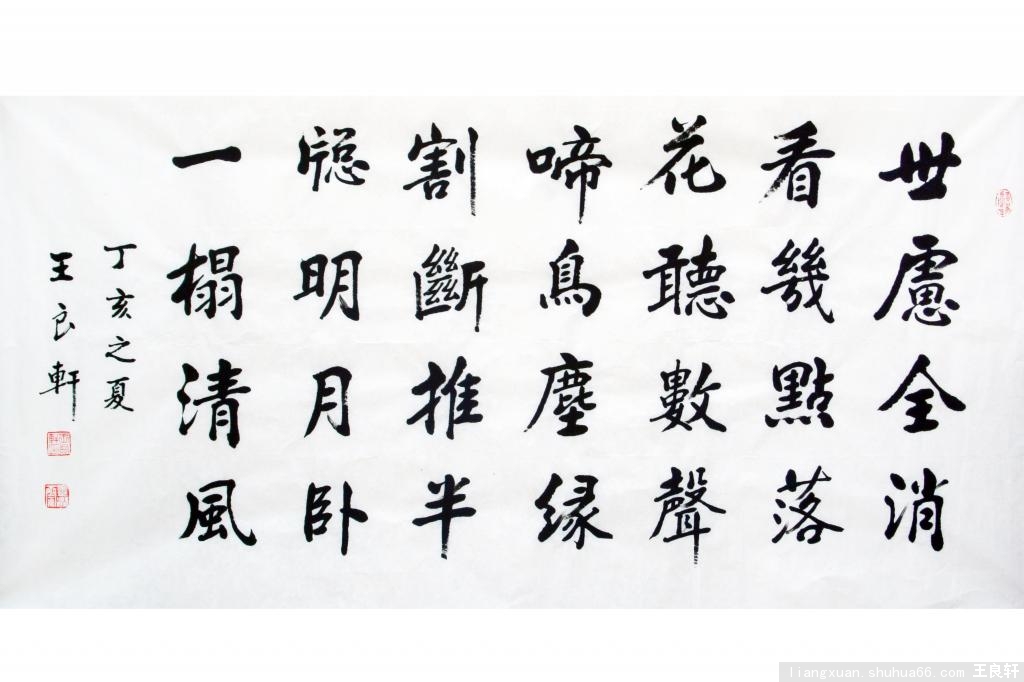 世慮全消
看幾點落
花聽數聲
啼鳥塵緣
割斷推半
窻明月卧
一榻清風
丁亥之夏
王良軒
liangxuan.shuhua66.com 王良轩